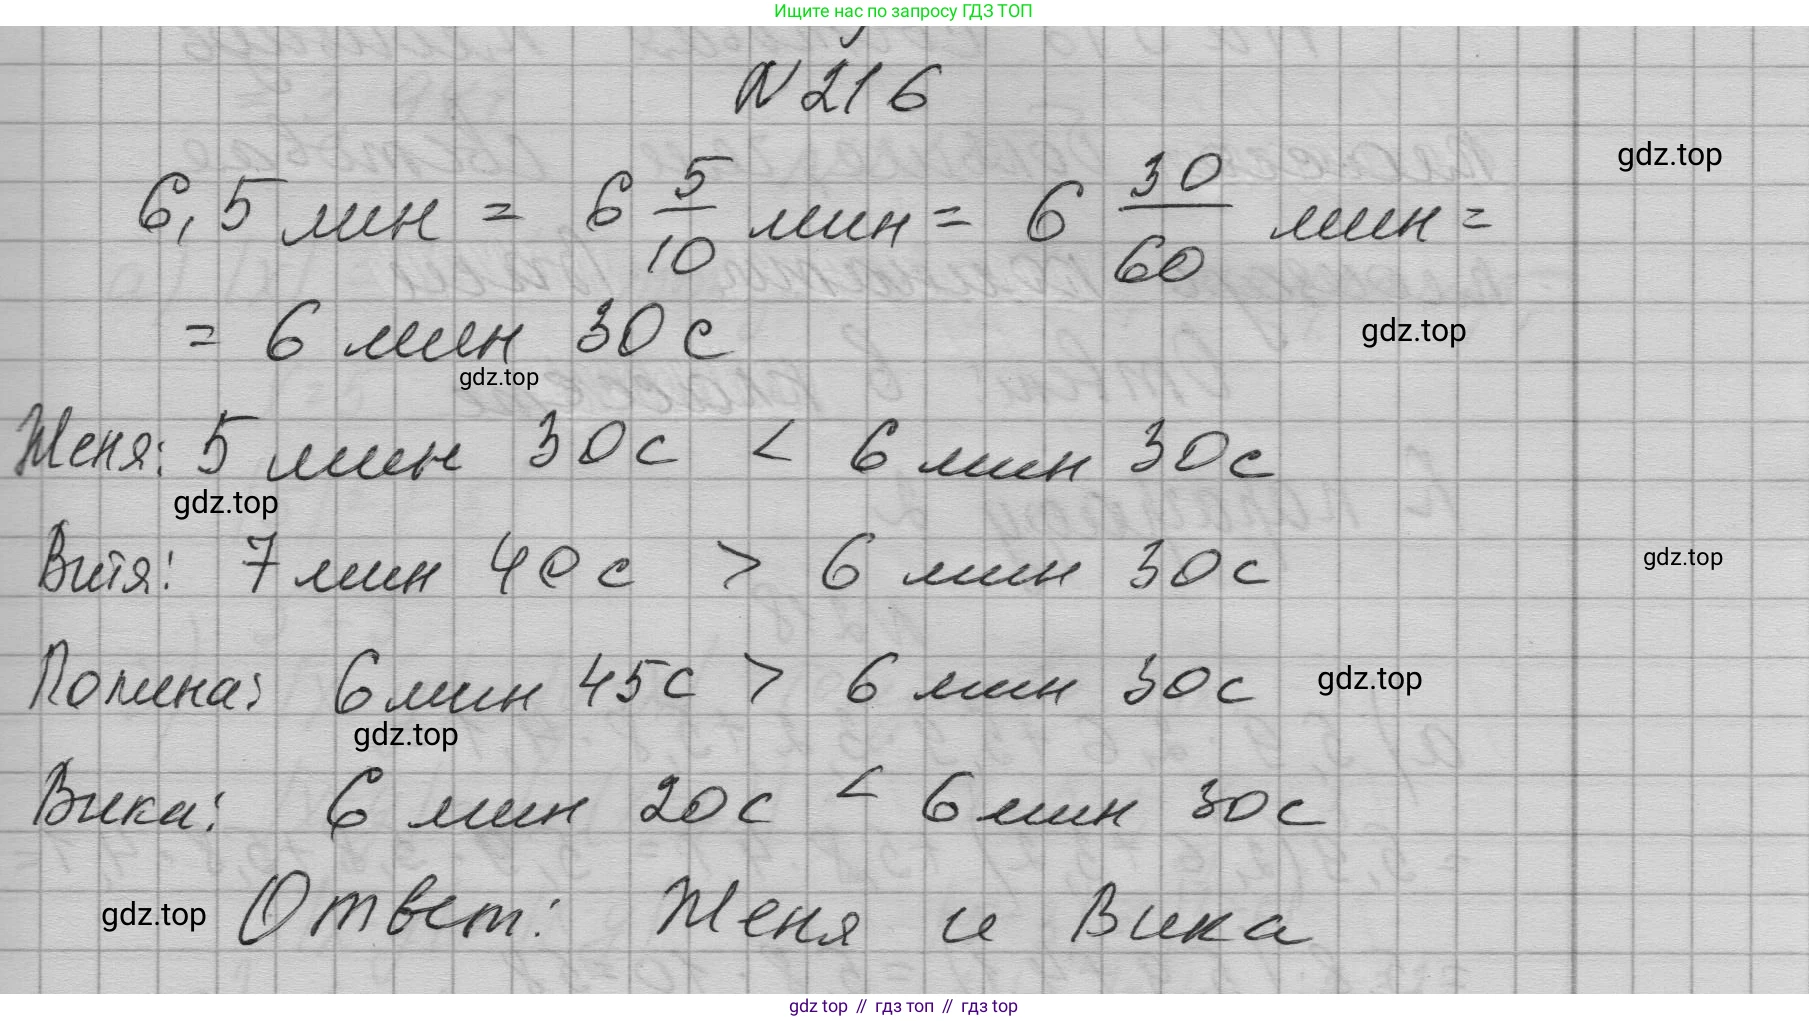 Ищите нас по запросу ГДЗ ТОП
№ 216
gdz.top
6,5 мин = 6 5/10 мин = 6 30/60 мин =
= 6 мин 30 с
gdz.top
gdz.top
Женя: 5 мин 30 с < 6 мин 30 с
gdz.top
Витя: 7 мин 40 с > 6 мин 30 с
gdz.top
Полина: 6 мин 45 с > 6 мин 30 с
gdz.top
gdz.top
Вика: 6 мин 20 с < 6 мин 30 с
gdz.top
Ответ: Женя и Вика
gdz top // гдз топ // gdz top